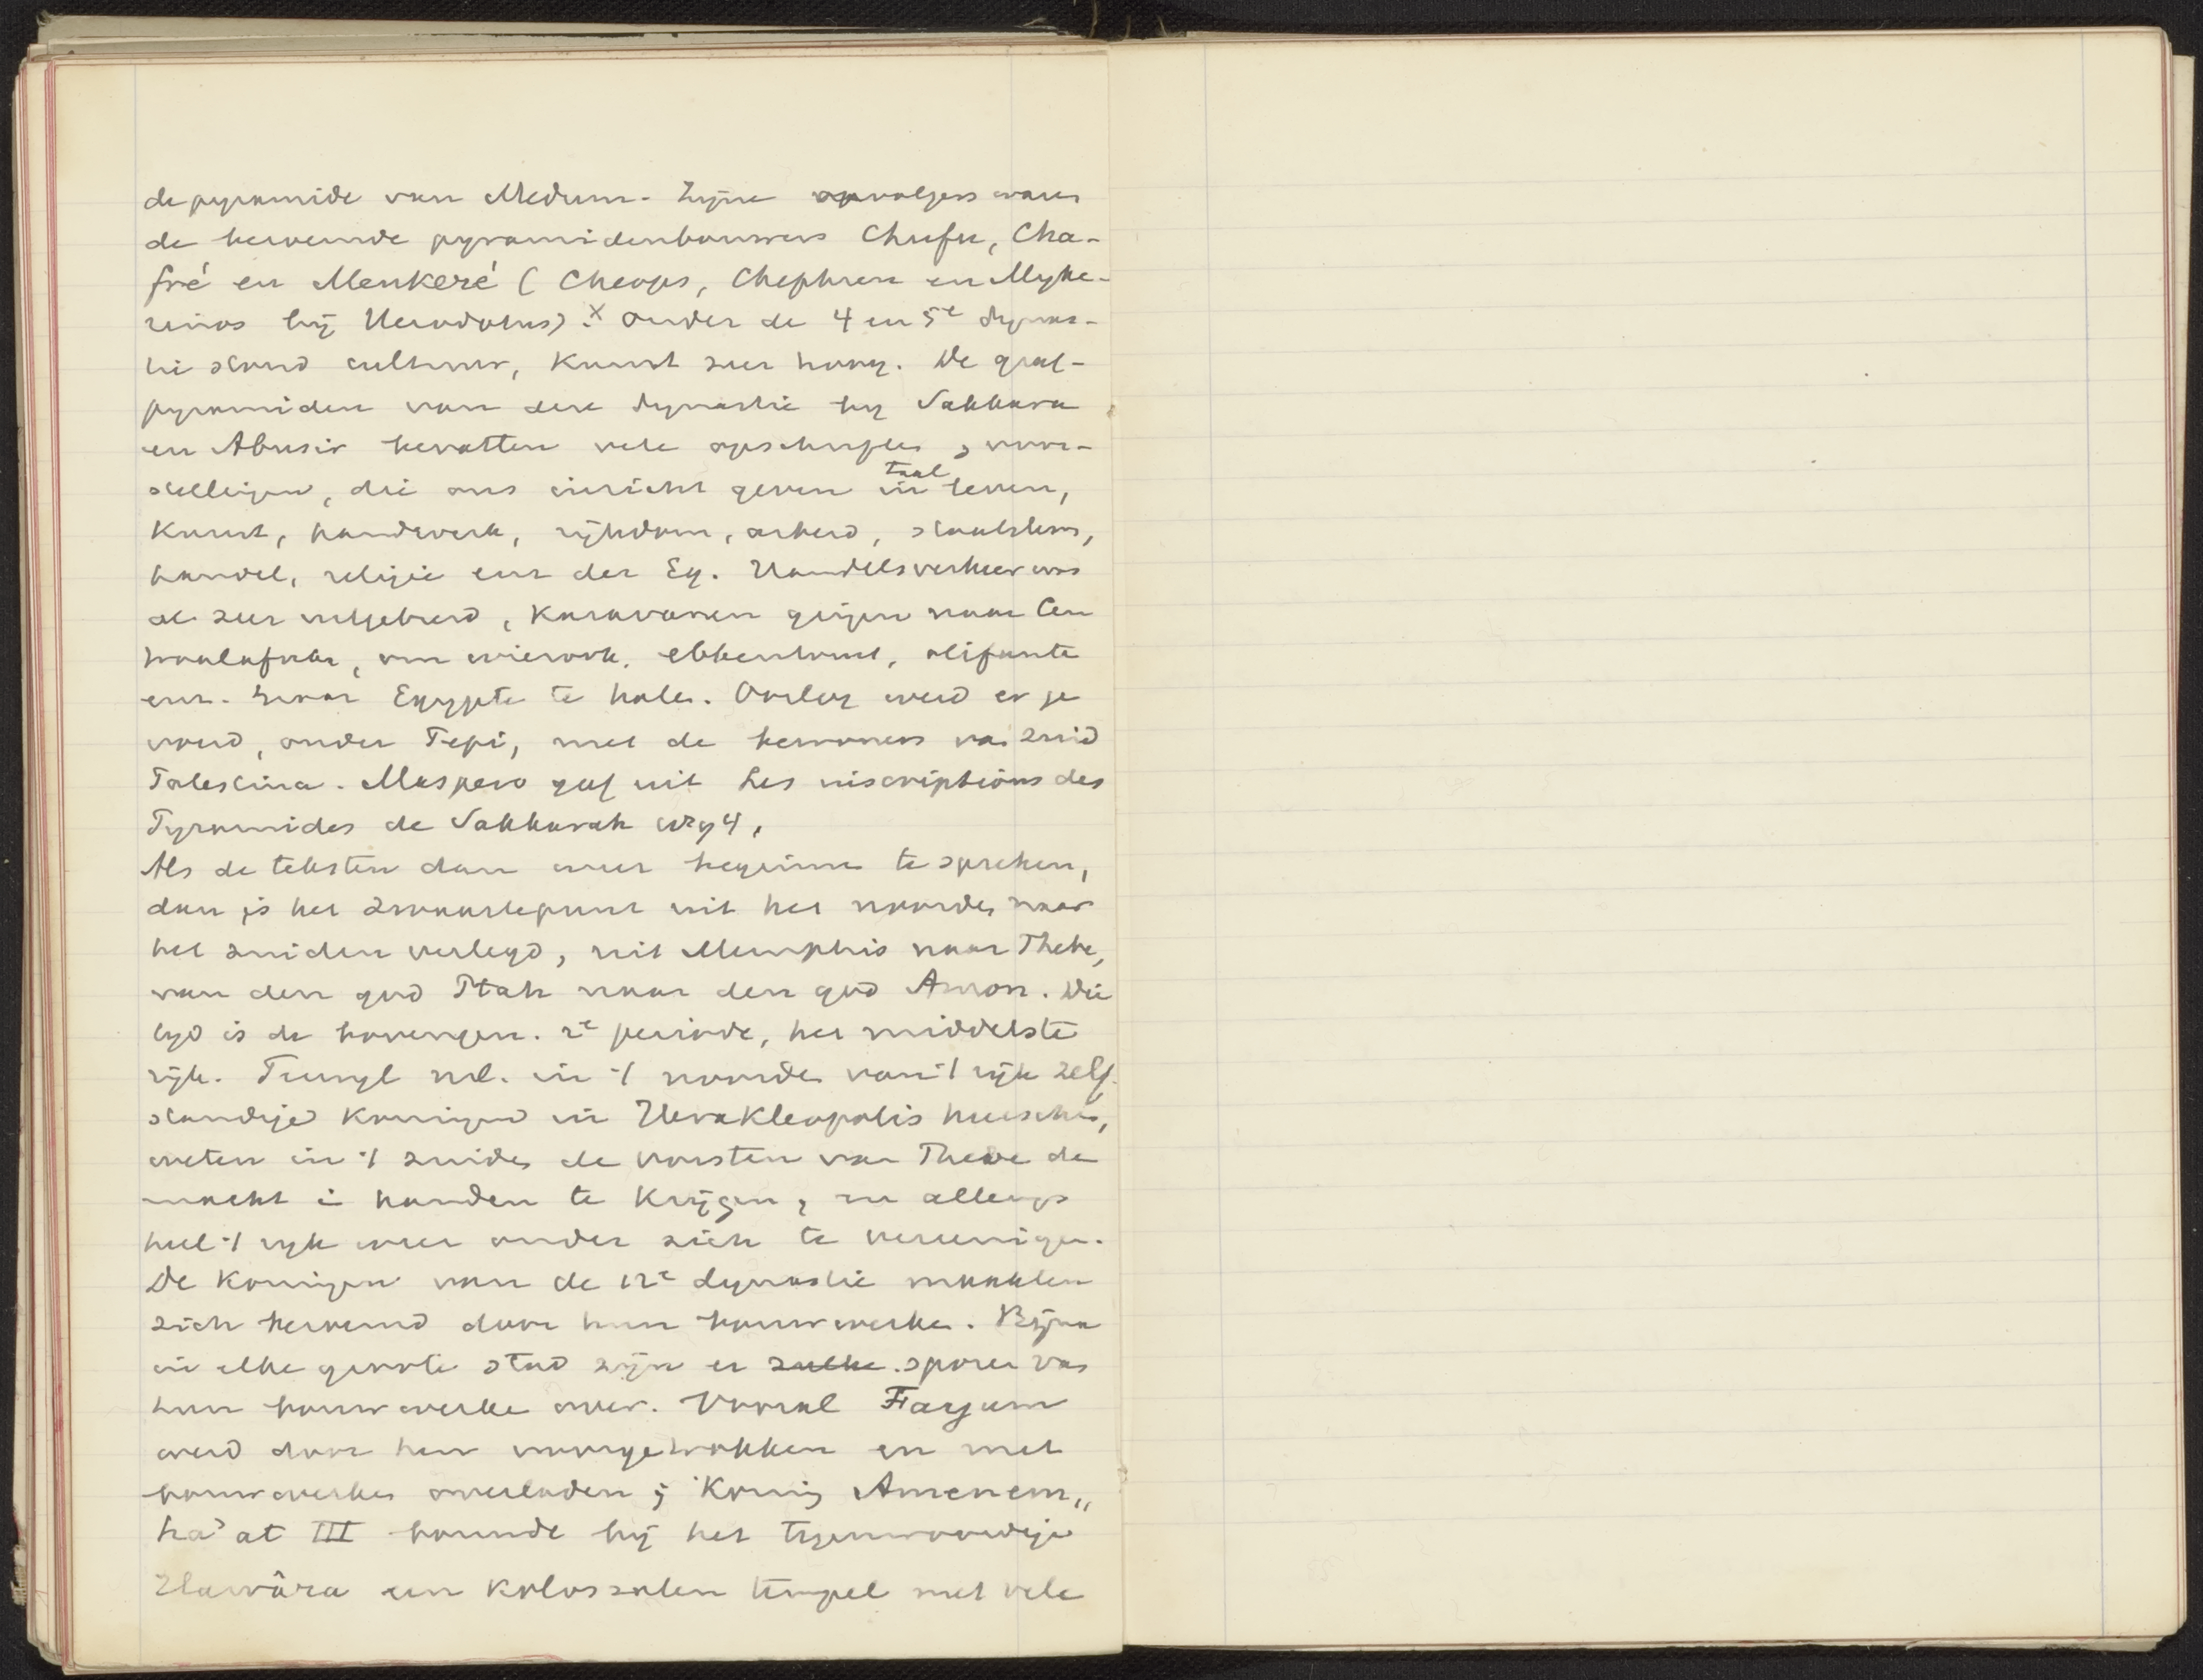 de pyramide van Medum. Zijne opvolgers waren
de beroemde pyramidenbouwers Chufu, Cha-
fré en Menkeré (Cheops, Chephren en Myke-
rinos bij Herodotus).x Onder de 4 en 5e dynas-
tie stond cultuur, Kunst zeer hoog. De graf-
pyramiden van deze dynastie bij Sakkara
en Abusir bevatten vele opschriften, voor-
stellingen, die ons inzicht geven in taal leven,
Kunst, handwerk, rijkdom, arbeid, staatsleven,
handel, religie enz der Eg. Handelsverkeer was
al zeer uitgebreid, Karavanen gingen naar Cen
traalafrika, om wierook, ebbenhout, olifanten
enz. naar Egypte te halen. Oorlog werd er ge
voerd, onder Pepi, met de bewoners van Zuid
Palestina. Maspero gaf uit Les inscriptions des
Pyramides de Sakkarah 1894.
Als de teksten dan weer beginnen te spreken,
dan is het zwaartepunt uit het noorden naar
het zuiden verlegd, uit Memphis naar Thebe,
van den god Ptah naar den god Amon. Die
tijd is de bovengen. 2e periode, het middelste
rijk. Terwijl nl. in 't noorden van 't rijk zelf-
standige Koningen in Herakleopolis heerschen,
weten in 't zuiden de vorsten van Thebe de
macht in handen te Krijgen, en allengs
heel 't rijk weer onder zich te vereenigen.
De Koningen van de 12e dynastie maakten
zich beroemd door hun bouwwerken. Bijna
in elke groote stad zijn er zulke sporen van
hun bouwwerken over. Vooral Fayum
werd door hen voorgetrokken en met
bouwwerken overladen; Koning Amenem„
ha'at III bouwde bij het tegenwoordige
Hawâra een Kolossalen tempel met vele